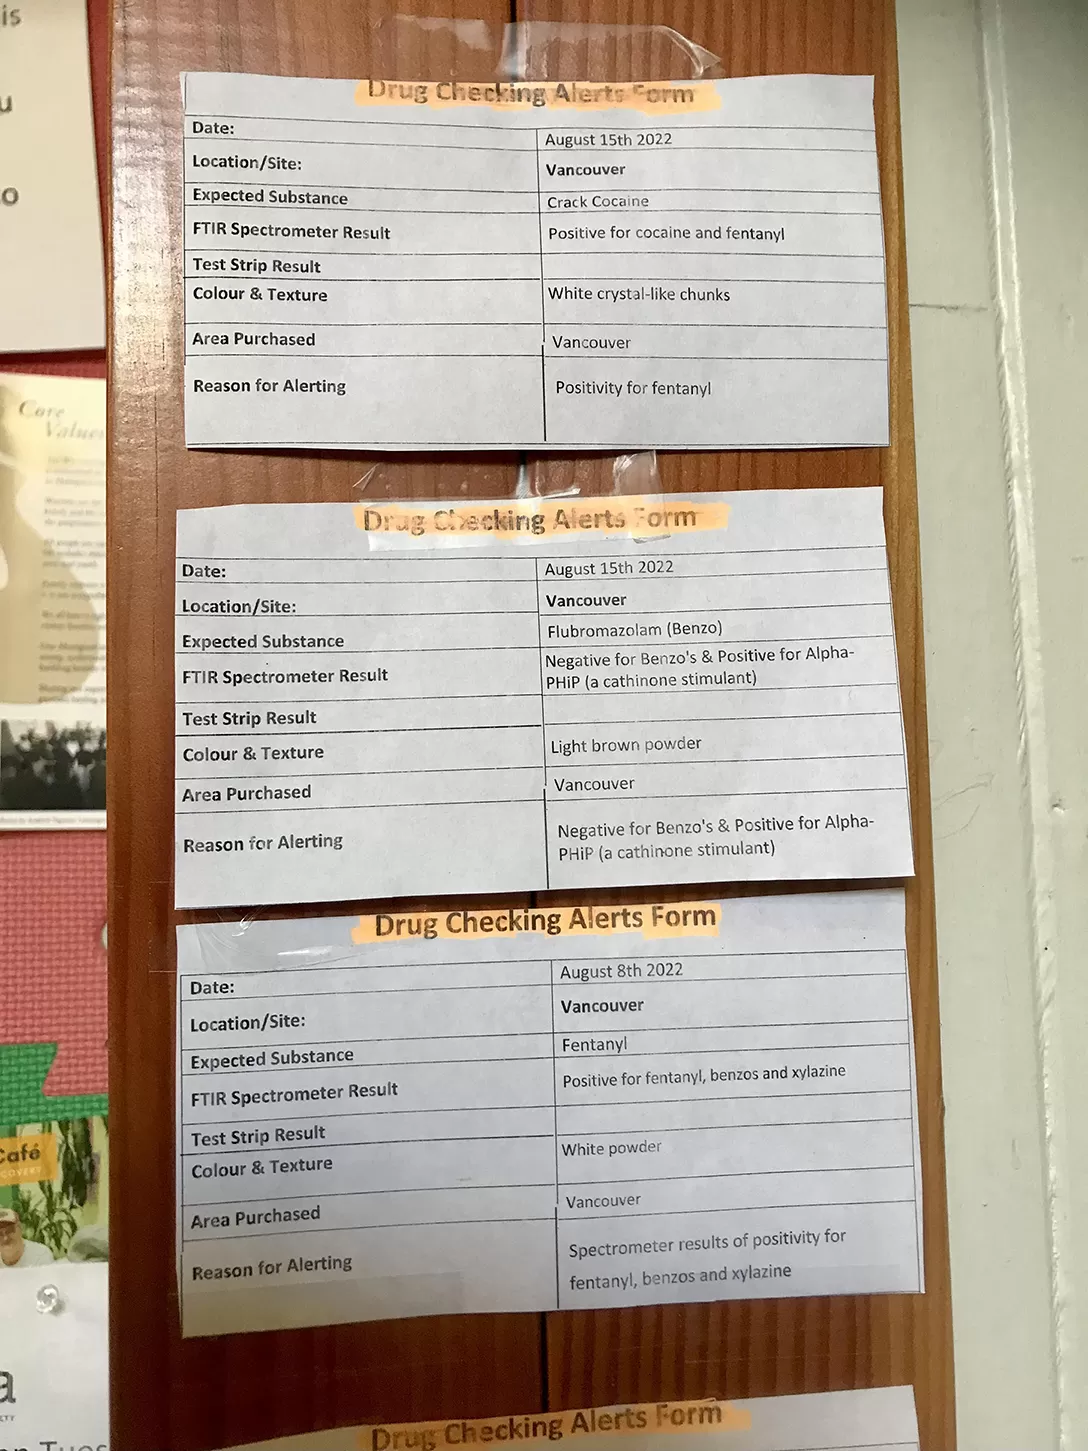 is
u
o
Core
Values
Café
COVERY
a
Drug Checking Alerts Form
Date: August 15th 2022
Location/Site: Vancouver
Expected Substance Crack Cocaine
FTIR Spectrometer Result Positive for cocaine and fentanyl
Test Strip Result
Colour & Texture White crystal-like chunks
Area Purchased Vancouver
Reason for Alerting Positivity for fentanyl
Drug Checking Alerts Form
Date: August 15th 2022
Location/Site: Vancouver
Expected Substance Flubromazolam (Benzo)
FTIR Spectrometer Result Negative for Benzo's & Positive for Alpha-
PHiP (a cathinone stimulant)
Test Strip Result
Colour & Texture Light brown powder
Area Purchased Vancouver
Reason for Alerting Negative for Benzo's & Positive for Alpha-
PHiP (a cathinone stimulant)
Drug Checking Alerts Form
Date: August 8th 2022
Location/Site: Vancouver
Expected Substance Fentanyl
FTIR Spectrometer Result Positive for fentanyl, benzos and xylazine
Test Strip Result
Colour & Texture White powder
Area Purchased Vancouver
Reason for Alerting Spectrometer results of positivity for
fentanyl, benzos and xylazine
Drug Checking Alerts Form